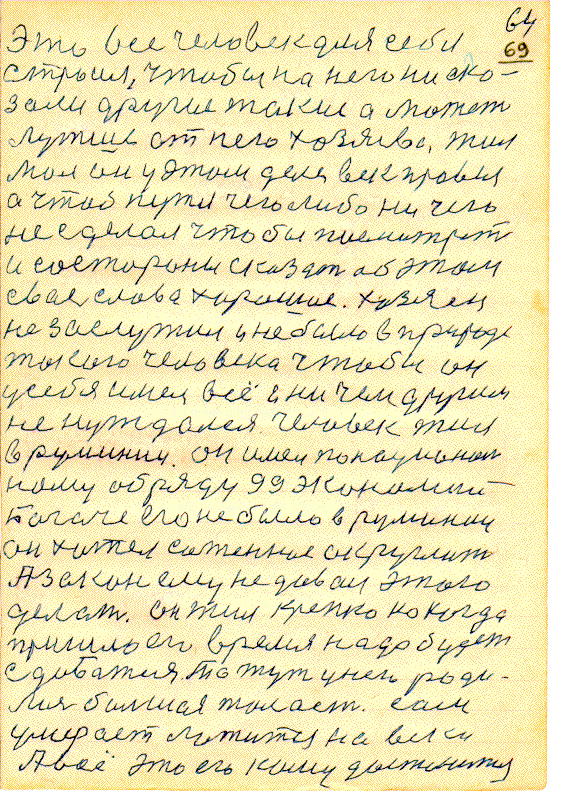 64
69
Это все человек для себя
строил, чтобы на него ни ска-
зали другие такие а может
лутше от него хозяева, жил
мол он у этом деле век провел
а чтоб путя чего либо ни чего
не сделал чтобы посмотреть
и состорони сказат об этом
свае слова хорошие. Хозяен
не заслужил и небыло в природе
такого человека чтобы он
усебя имел всё и ни чем другим
не нуждался. Человек жил
в румынии. он имел понационал
ному обряду 99 экономий
Богаче его не было в румынии
он хотел сотенное округлит
А закон ему не давал этого
делат. он жил крепко но когда
пришло его время надо будет
сдаватся. То тут унего роди-
лия большая толаст. сам
умерает ложится на веки
А всё это его кому достанится